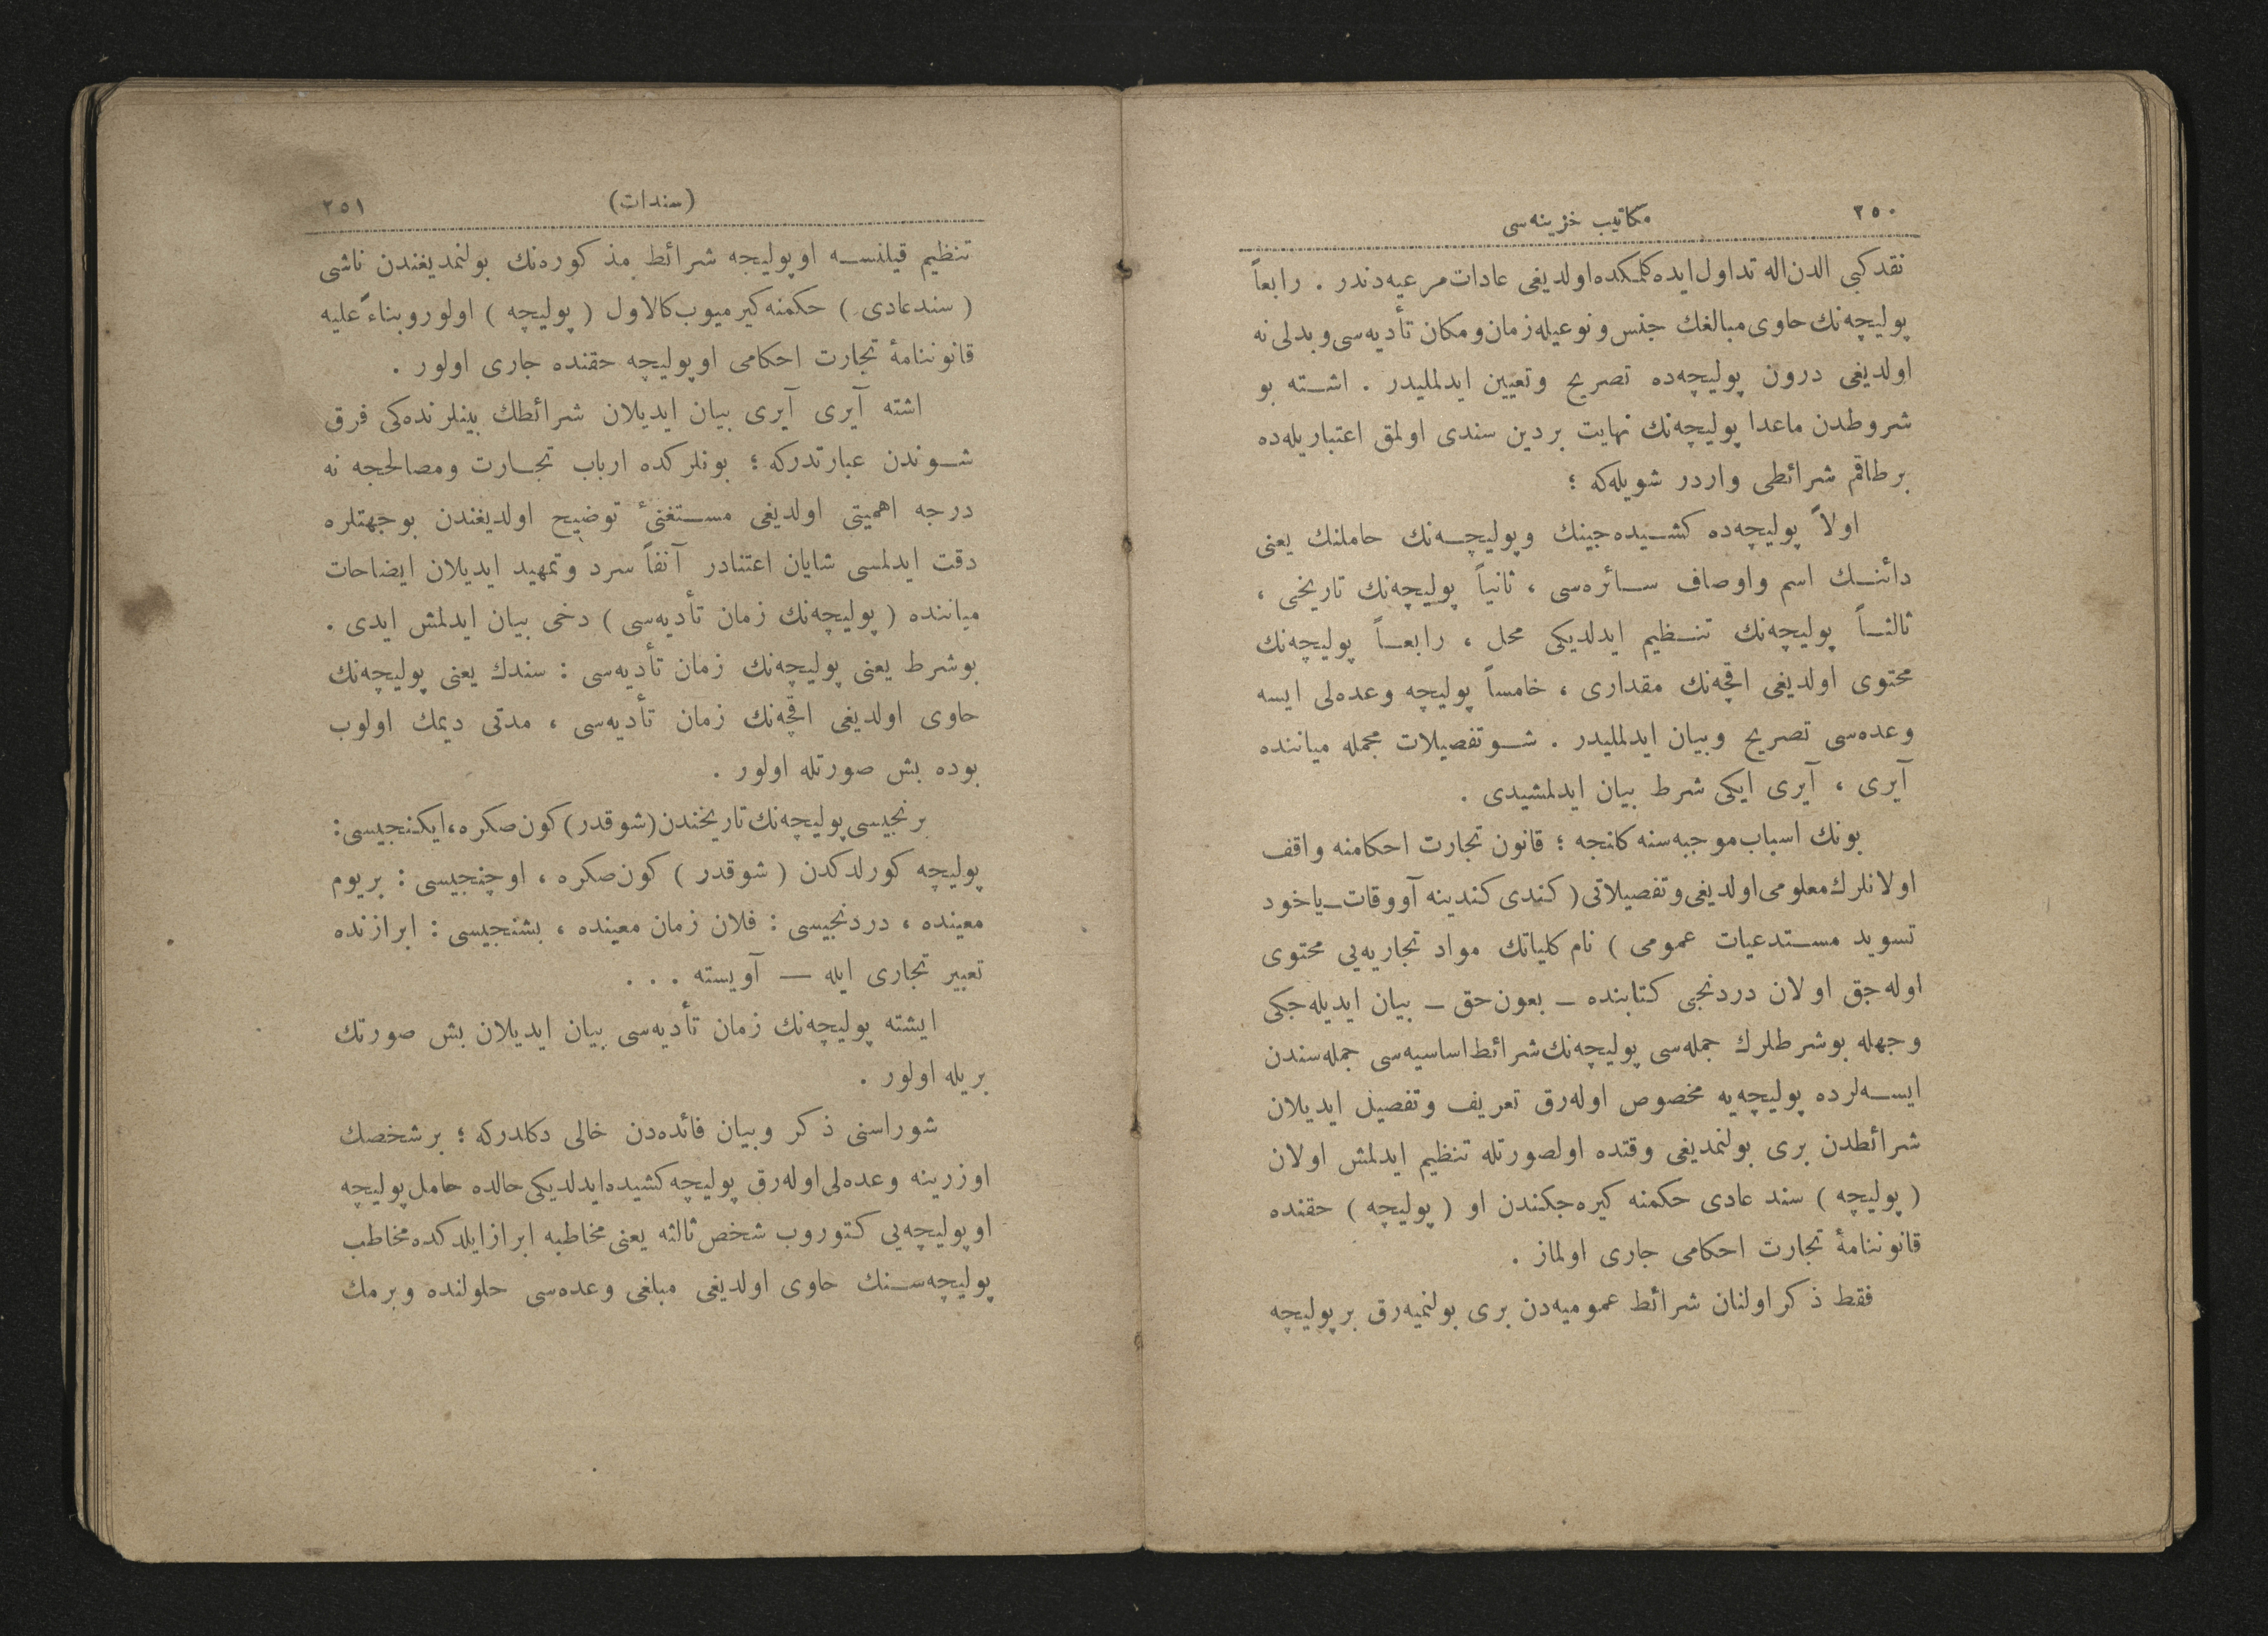 ٢٥٠
مكاتيب خزينه‌سی
نقد كبی الدن اله تداول ايده كلمكده اولديغی عادات مرعيه‌دندر . رابعاً
پوليچه‌نك حاوی مبالغك جنس و نوعيله زمان و مكان تأديه‌سی و بدلی نه
اولديغی درون پوليچه‌ده تصريح وتعيين ايدلمليدر . اشته بو
شروطدن ماعدا پوليچه‌نك نهايت بر دين سندی اولمق اعتباريله‌ده
برطاقم شرائطی واردر شويله‌كه ؛
اولاً پوليچه‌ده كشيده‌جينك وپوليچه‌نك حاملنك يعنی
دائنك اسم واوصاف سائره‌سی ، ثانياً پوليچه‌نك تاريخی ،
ثالثاً پوليچه‌نك تنظيم ايدلديكی محل ، رابعاً پوليچه‌نك
محتوی اولديغی اقچه‌نك مقداری ، خامساً پوليچه وعده‌لی ايسه
وعده‌سی تصريح وبيان ايدلمليدر . شو تفصيلات مجمله مياننده
آيری ، آيری ايكی شرط بيان ايدلمشيدی .
بونك اسباب موجبه‌سنه كلنجه ؛ قانون تجارت احكامنه واقف
اولانلرك معلومی اولديغی وتفصيلاتی ( كندی كندينه آووقات ـ ياخود
تسويد مستدعيات عمومی ) نام كلياتك مواد تجاريه‌يی محتوی
اوله‌جق اولان دردنجی كتابنده ـ بعون حق ـ بيان ايديله‌جكی
وجهله بوشرطلرك جمله‌سی پوليچه‌نك شرائط اساسيه‌سی جمله‌سندن
ايسه‌لرده پوليچه‌يه مخصوص اوله‌رق تعريف وتفصيل ايديلان
شرائطدن بری بولنمديغی وقتده اولصورتله تنظيم ايدلمش اولان
( پوليچه ) سند عادی حكمنه كيره‌جكندن او ( پوليچه ) حقنده
قانوننامۀ تجارت احكامی جاری اولماز .
فقط ذكر اولنان شرائط عموميه‌دن بری بولنميه‌رق بر پوليچه
(سندات)
٢٥١
تنظيم قيلنسه او پوليچه شرائط مذكوره‌نك بولنمديغندن ناشی
( سند عادی ) حكمنه كيرميوب كالاول ( پوليچه ) اولور و بناءً عليه
قانوننامۀ تجارت احكامی او پوليچه حقنده جاری اولور .
اشته آيری آيری بيان ايديلان شرائطك بينلرنده‌كی فرق
شوندن عبارتدركه ؛ بونلركده ارباب تجارت ومصالحجه نه
درجه اهميتی اولديغی مستغنئ توضيح اولديغندن بوجهتلره
دقت ايدلمسی شايان اعتنادر آنفاً سرد و تمهيد ايديلان ايضاحات
مياننده ( پوليچه‌نك زمان تأديه‌سی ) دخی بيان ايدلمش ايدی .
بوشرط يعنی پوليچه‌نك زمان تأديه‌سی : سندك يعنی پوليچه‌نك
حاوی اولديغی اقچه‌نك زمان تأديه‌سی ، مدتی ديمك اولوب
بوده بش صورتله اولور .
برنجيسی پوليچه‌نك تاريخندن (شوقدر) كون صكره ، ايكنجيسی :
پوليچه كورلدكدن ( شوقدر ) كون صكره ، اوچنجيسی : بر يوم
معينده ، دردنجيسی : فلان زمان معينده ، بشنجيسی : ابرازنده
تعبير تجاری ايله — آويسته . . .
ايشته پوليچه‌نك زمان تأديه‌سی بيان ايديلان بش صورتك
بريله اولور .
شوراسنی ذكر وبيان فائده‌دن خالی دكلدركه ؛ برشخصك
اوزرينه وعده‌لی اوله‌رق پوليچه كشيده ايدلديكی حالده حامل پوليچه
او پوليچه‌يی كتوروب شخص ثالثه يعنی مخاطبه ابراز ايلدكده مخاطب
پوليچه‌سنك حاوی اولديغی مبلغی وعده‌سی حلولنده ويرمك